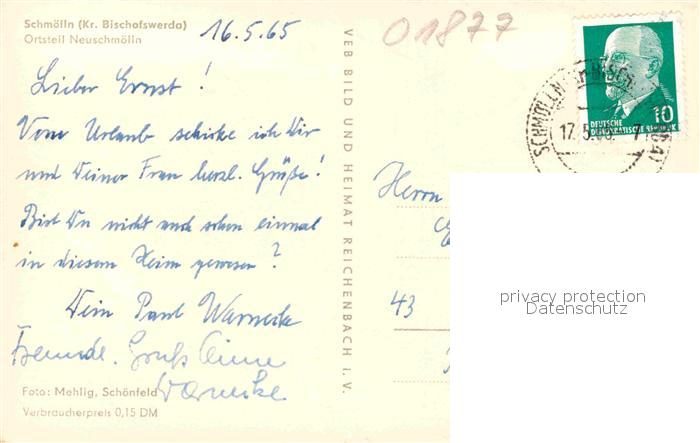 Schmölln (Kr. Bischofswerda)
Ortsteil Neuschmölln
16.5.65
Lieber Ernst!
Vom Urlaub schicke ich Dir
und Deiner Frau herzl. Grüße!
Bist Du nicht auch schon einmal
in diesem Heim gewesen?
Dein Paul Warnecke
Freundl. Gruß Anne
Warnecke
Foto: Mehlig, Schönfeld
Verbraucherpreis 0,15 DM
VEB BILD UND HEIMAT REICHENBACH i. V.
01877
SCHMÖLLN
17.5.
10
DEUTSCHE
DEMOKRATISCHE REPUBLIK
Herrn
43
privacy protection
Datenschutz